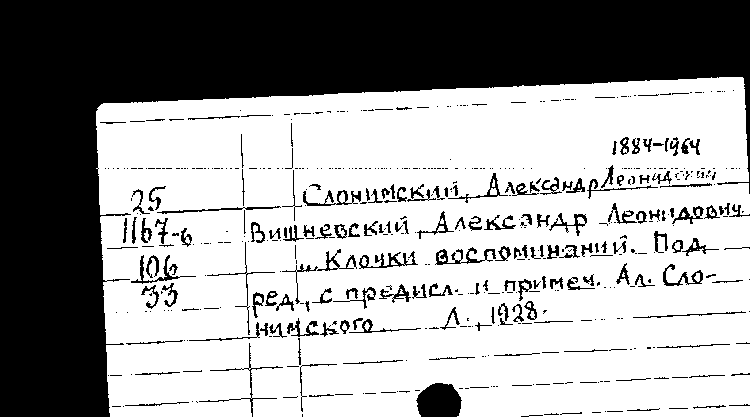 1884-1964
25 Слонимский, Александр Леонидович
1167-6 Вишневский, Александр Леонидович
106 „ Клочки воспоминаний. Под
33 ред., с предисл. и примеч. Ал. Сло-
нимского. Л., 1928.